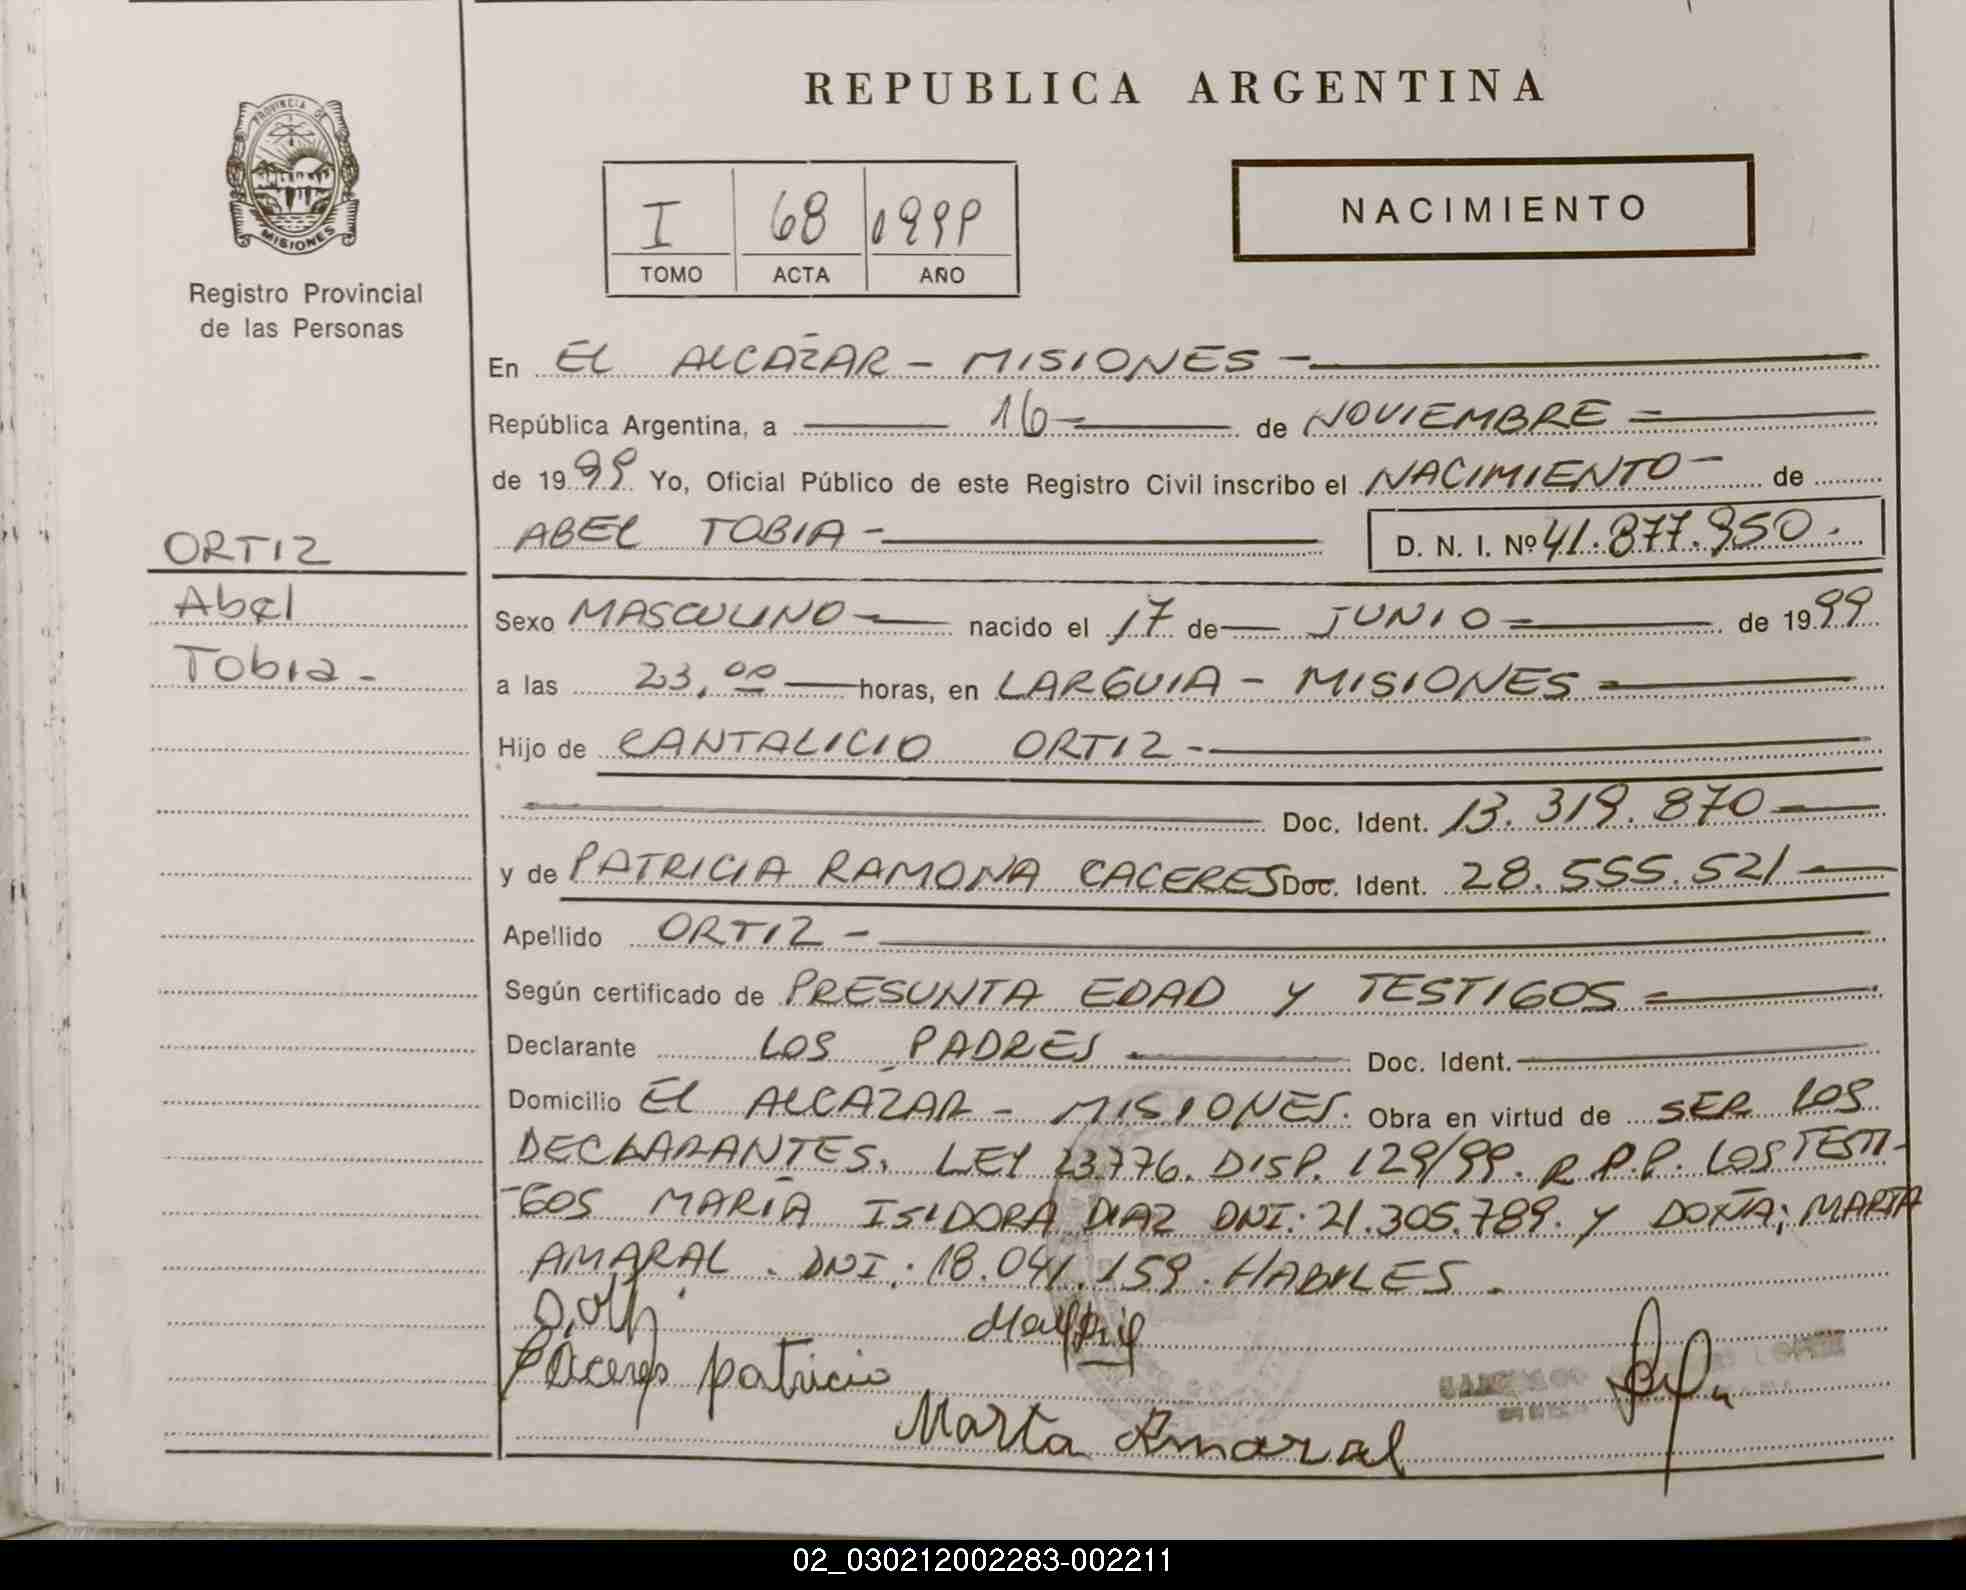 REPUBLICA ARGENTINA
PROVINCIA DE
MISIONES
Registro Provincial
de las Personas
I 68 1999
TOMO ACTA AÑO
NACIMIENTO
En EL ALCÁZAR - MISIONES -
República Argentina, a 16 de NOVIEMBRE
de 1999 Yo, Oficial Público de este Registro Civil inscribo el NACIMIENTO - de
ABEL TOBIA - D. N. I. Nº 41.877.950.
ORTIZ
Abel
Tobia -
Sexo MASCULINO nacido el 17 de JUNIO de 1999
a las 23,00 horas, en LARGUIA - MISIONES
Hijo de CANTALICIO ORTIZ -
Doc. Ident. 13.319.870
y de PATRICIA RAMONA CACERES Doc. Ident. 28.555.521
Apellido ORTIZ -
Según certificado de PRESUNTA EDAD Y TESTIGOS
Declarante LOS PADRES Doc. Ident.
Domicilio EL ALCÁZAR - MISIONES. Obra en virtud de SER LOS
DECLARANTES. LEY 23.776. DISP. 129/99. R.P.P. LOS TESTI-
-GOS MARÍA ISIDORA DIAZ DNI: 21.305.789. Y DOÑA; MARTA
AMARAL. DNI: 18.041.159. HABILES.
Caceres patricia
Marta Amaral
02_030212002283-002211